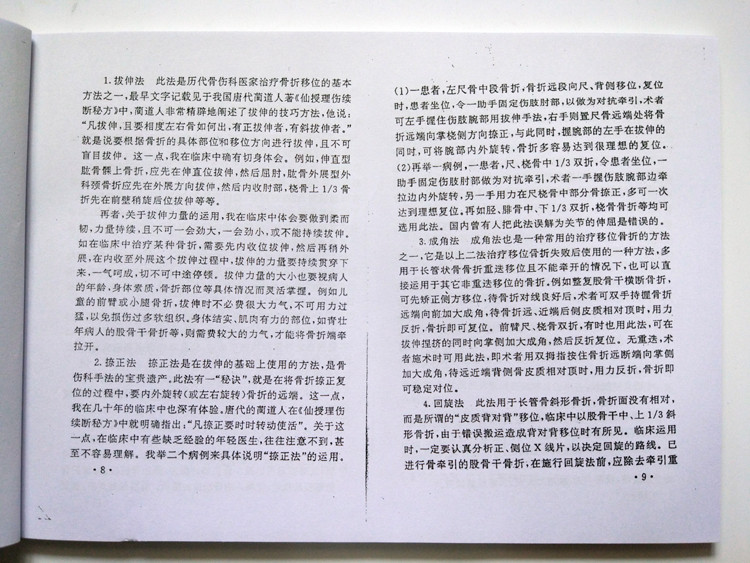 1.拔伸法 此法是历代骨伤科医家治疗骨折移位的基本
方法之一,最早文字记载见于我国唐代蔺道人著《仙授理伤续
断秘方》中,蔺道人非常精辟地阐述了拔伸的技巧方法,他说:
“凡拔伸,且要相度左右骨如何出,有正拔伸者,有斜拔伸者。”
就是说要根据骨折的具体部位和移位方向进行拔伸,且不可
盲目拔伸。这一点,我在临床中确有切身体会。例如,伸直型
肱骨髁上骨折,应先在伸直位拔伸,然后屈肘,肱骨外展型外
科颈骨折应先在外展方向拔伸,然后内收肘部,桡骨上1/3骨
折先在前壁稍旋后位拔伸等等。
再者,关于拔伸力量的运用,我在临床中体会要做到柔而
韧,力量持续,且不可一会劲大,一会劲小,或不能持续拔伸。
如在临床中治疗某种骨折,需要先内收位拔伸,然后再稍外
展,在内收至外展这个拔伸过程中,拔伸的力量要持续贯穿下
来,一气呵成,切不可中途停顿。拔伸力量的大小也要视病人
的年龄,身体素质,骨折部位等具体情况而灵活掌握。例如儿
童的前臂或小腿骨折,拔伸时不必费很大力气,不可用力过
猛,以免损伤过多软组织。身体结实、肌肉有力的部位,如青壮
年病人的股骨干骨折等,则需费较大的力气,才能将骨折端牵
拉开。
2.捺正法 捺正法是在拔伸的基础上使用的方法,是骨
伤科手法的宝贵遗产。此法有一“秘诀”,就是在将骨折捺正复
位的过程中,要内外旋转(或左右旋转)骨折的远端。这一点,
我在几十年的临床中也深有体验。唐代的蔺道人在《仙授理伤
续断秘方》中就明确指出:“凡捺正要时时转动使活”。关于这
一点,在临床中有些缺乏经验的年轻医生,往往注意不到,甚
至不容易理解。我举二个病例来具体说明“捺正法”的运用。
·8·
(1)一患者,左尺骨中段骨折,骨折远段向尺、背侧移位,复位
时,患者坐位,令一助手固定伤肢肘部,以做为对抗牵引,术者
可左手握住伤肢腕部用拔伸手法,右手则置尺骨远端处将骨
折远端向掌桡侧方向捺正,与此同时,握腕部的左手在拔伸的
同时,可将腕部内外旋转,骨折多容易达到很理想的复位。
(2)再举一病例,一患者,尺、桡骨中1/3双折,令患者坐位,一
助手固定伤肢肘部做为对抗牵引,术者一手握伤肢腕部边牵
拉边内外旋转,另一手用力在尺桡骨中部分骨捺正,多可一次
达到理想复位。再如胫、腓骨中、下1/3双折,桡骨骨折等均可
选用此法。国内曾有人把此法误解为关节的伸屈是错误的。
3.成角法 成角法也是一种常用的治疗移位骨折的方法
之一,它是以上二法治疗移位骨折失败后使用的一种方法,多
用于长管状骨骨折重迭移位且不能牵开的情况下,也可以直
接运用于其它非重迭移位的骨折。例如整复股骨干横断骨折,
可先矫正侧方移位,待骨折对线良好后,术者可双手持握骨折
远端向前加大成角,待骨折远、近端后侧皮质相对顶时,用力
反折,骨折即可复位。前臂尺、桡骨双折,有时也用此法,可在
拔伸捏挤的同时向掌侧加大成角,然后反折复位。无重迭,术
者施术时可用此法,即术者用双拇指按住骨折远断端向掌侧
加大成角,待远近端背侧骨皮质相对顶时,用力反折,骨折即
可稳定对位。
4.回旋法 此法用于长管骨斜形骨折,骨折面没有相对,
而是所谓的“皮质背对背”移位,临床中以股骨干中、上1/3斜
形骨折,由于错误搬运造成背对背移位时有所见。临床运用
时,一定要认真分析正、侧位X线片,以决定回旋的路线。已
进行骨牵引的股骨干骨折,在施行回旋法前,应除去牵引重
·9·